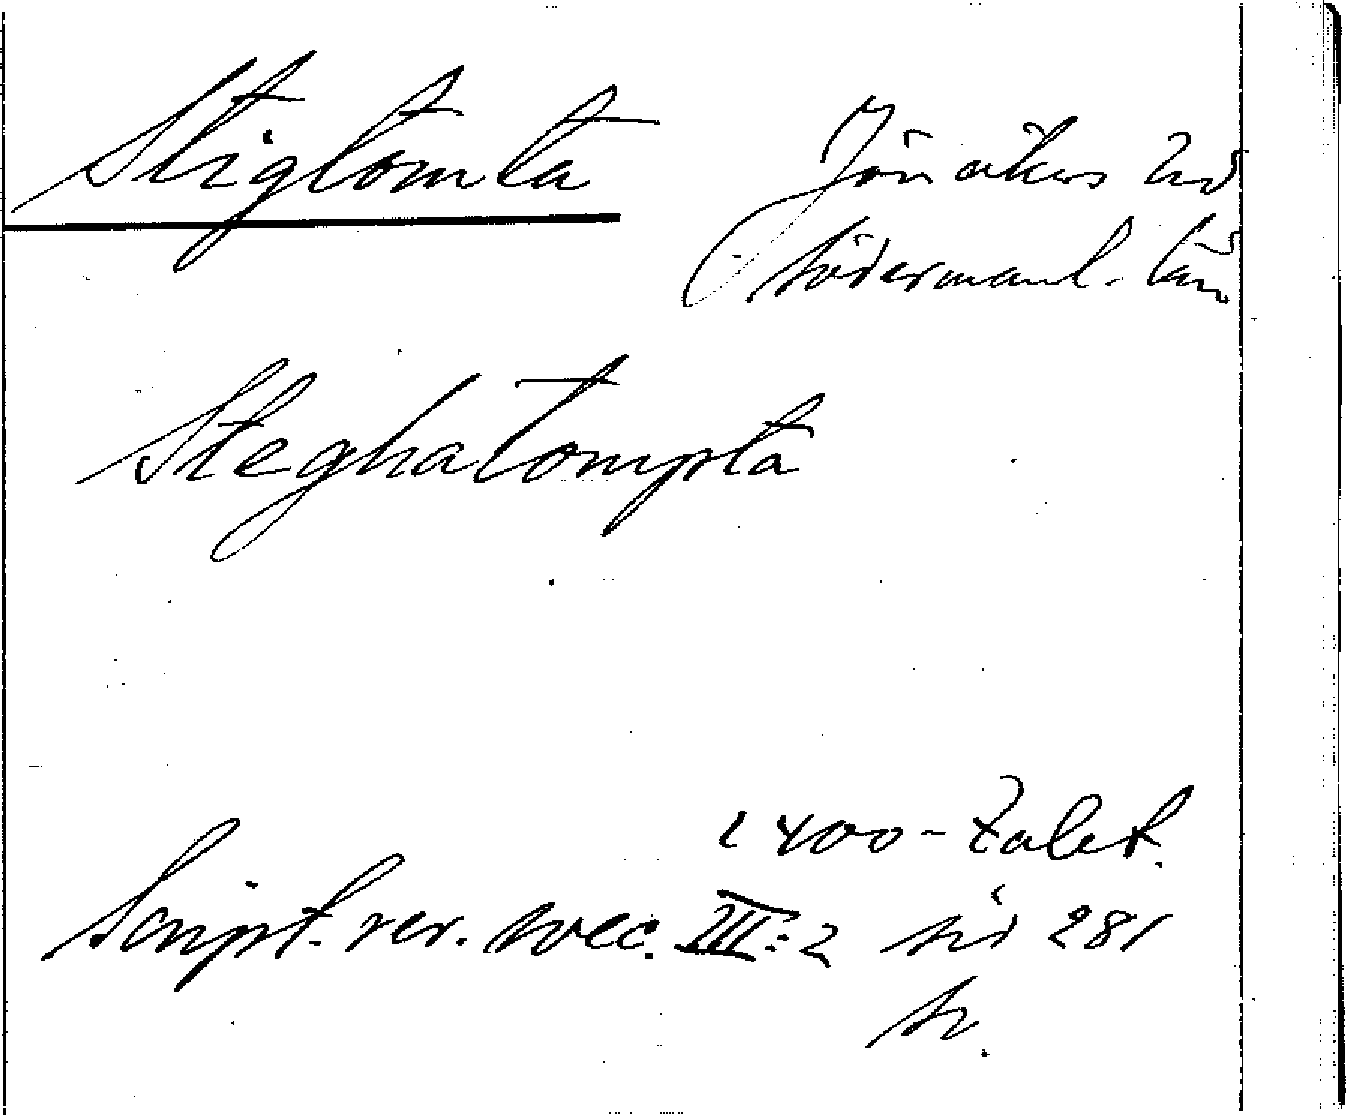 Stigtomta Jönåkers hd
Södermanl. län
Steghatompta
1400-talet.
Script. rer. svec. III:2 sid 281
sv.